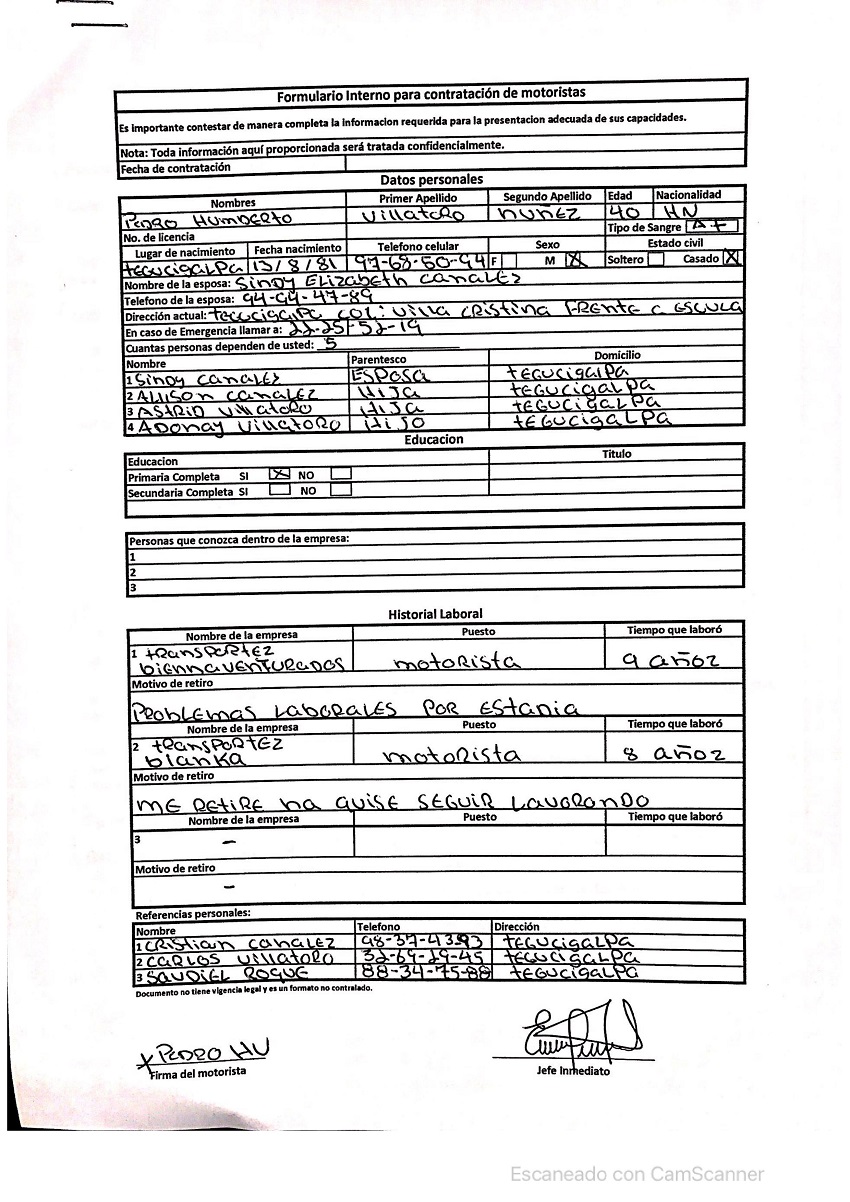 Formulario Interno para contratación de motoristas
Es importante contestar de manera completa la informacion requerida para la presentacion adecuada de sus capacidades.
Nota: Toda información aquí proporcionada será tratada confidencialmente.
Fecha de contratación
Datos personales
Nombres Primer Apellido Segundo Apellido Edad Nacionalidad
PEDRO HUMBERTO Villatoro NUNEZ 40 HN
No. de licencia Tipo de Sangre A+
Lugar de nacimiento Fecha nacimiento Telefono celular Sexo Estado civil
tegucigalpa 13/8/81 97-68-60-94 F M X Soltero Casado X
Nombre de la esposa: Sindy Elizabeth canalez
Telefono de la esposa: 94-94-47-89
Dirección actual: tegucigalpa col: villa cristina frente a escula
En caso de Emergencia llamar a: 22-25-52-19
Cuantas personas dependen de usted: 5
Nombre Parentesco Domicilio
1 Sindy canalez ESPOSA tegucigalpa
2 Allison canalez HIJA tegucigalpa
3 ASTRID villatoro HIJA tegucigalpa
4 ADONAY villatoro HIJO tegucigalpa
Educacion
Educacion Titulo
Primaria Completa SI X NO
Secundaria Completa SI NO
Personas que conozca dentro de la empresa:
1
2
3
Historial Laboral
Nombre de la empresa Puesto Tiempo que laboró
1 transportez
biennaventurados motorista 9 añoz
Motivo de retiro
PROBLEMAS LABORALES POR ESTANIA
Nombre de la empresa Puesto Tiempo que laboró
2 transportez
blanka motorista 8 añoz
Motivo de retiro
ME RETIRE na QUISE SEGUIR LAVORANDO
Nombre de la empresa Puesto Tiempo que laboró
3 –
Motivo de retiro
–
Referencias personales:
Nombre Telefono Dirección
1 CRistian canalez 98-37-4393 tegucigalpa
2 CARLOS villatoro 32-69-29-45 tegucigalpa
3 SAUDIEL ROQUE 88-34-75-88 tegucigalpa
Documento no tiene vigencia legal y es un formato no contralado.
x PEDRO HU
Firma del motorista Jefe Inmediato
Escaneado con CamScanner